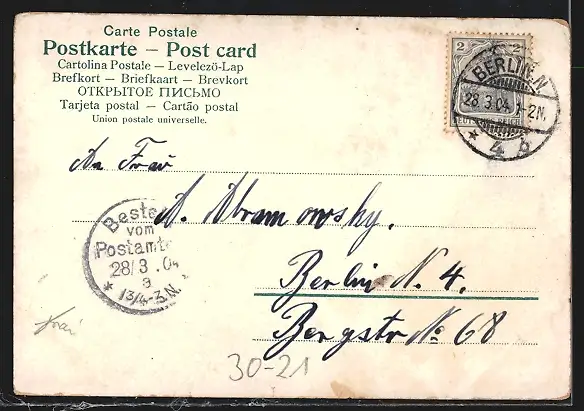 Carte Postale
Postkarte – Post card
Cartolina Postale – Levelezö-Lap
Brefkort – Briefkaart – Brevkort
ОТКРЫТОЕ ПИСЬМО
Tarjeta postal – Cartão postal
Union postale universelle.
2 2
BERLIN.N.
28.3.04.1-2N.
* 4 b
An Frau
A. Abramowsky.
Berlin N. 4.
Bergstr No 68
Bestellt
vom
Postamte
28/3.04
1 3/4-3.N.
30-21